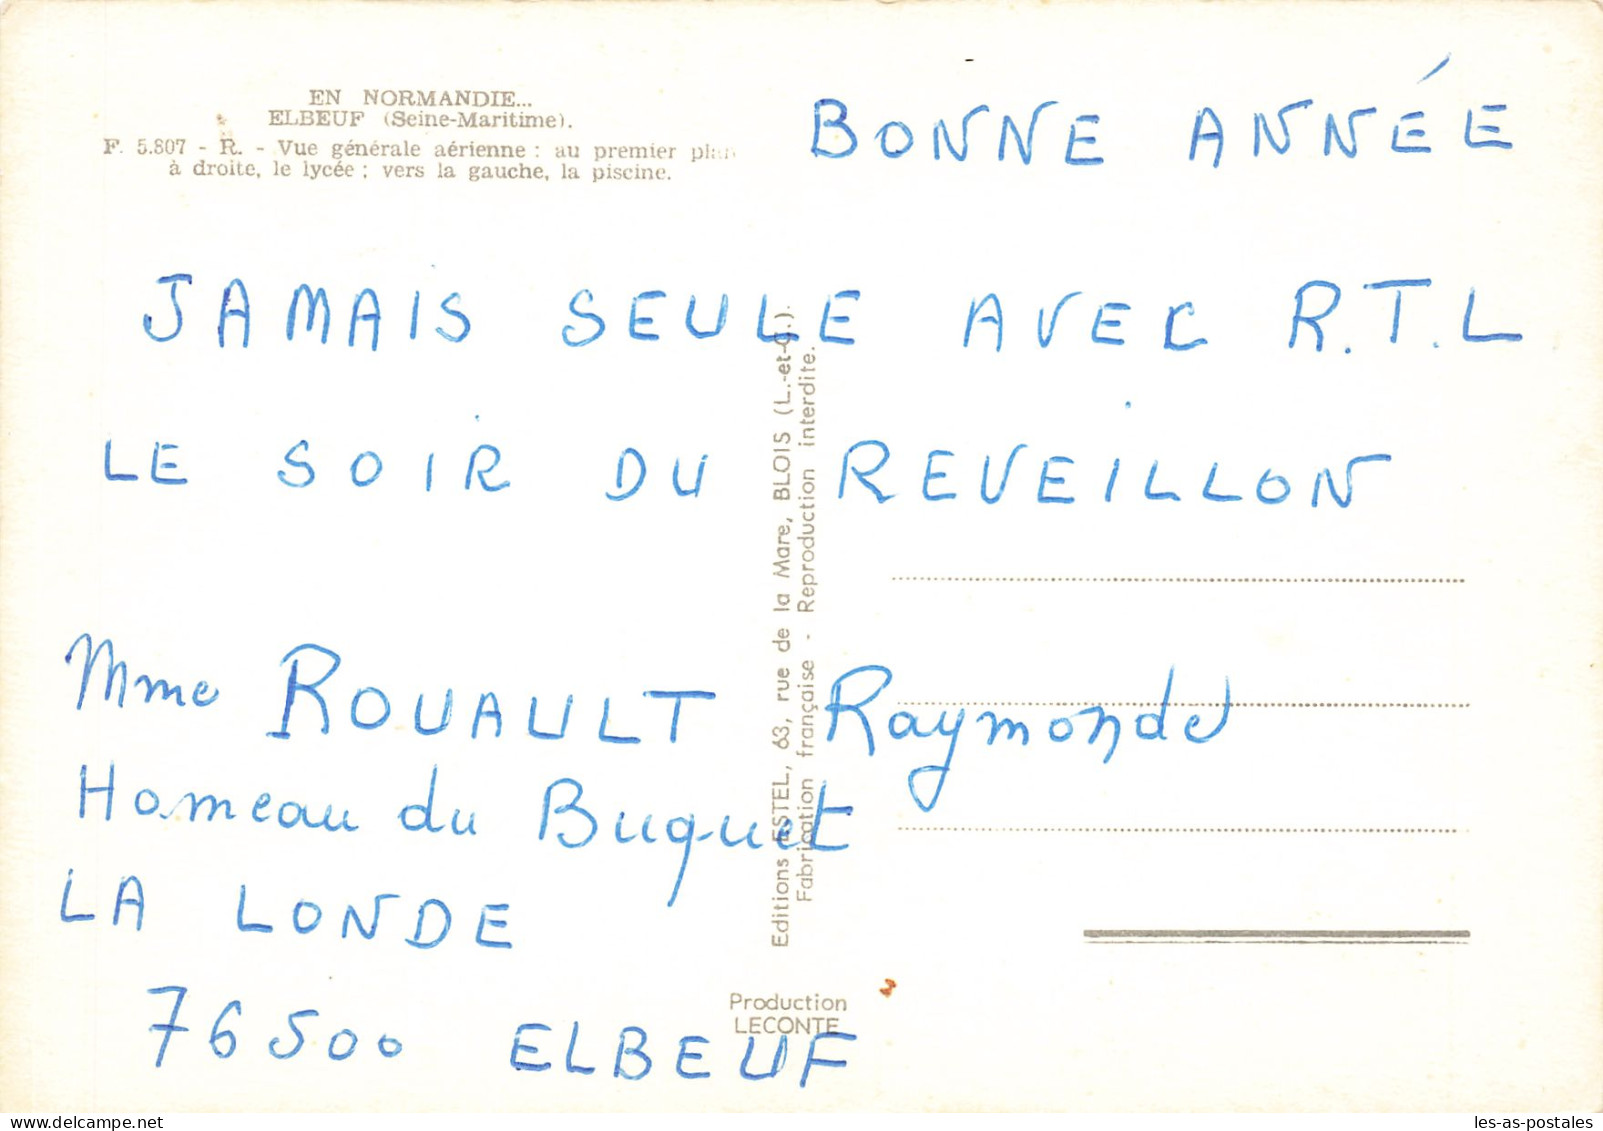 EN NORMANDIE...
ELBEUF (Seine-Maritime).
F. 5.807 - R. - Vue générale aérienne : au premier plan
à droite, le lycée ; vers la gauche, la piscine.
BONNE ANNÉE
JAMAIS SEULE AVEC R.T.L
LE SOIR DU REVEILLON
Mme ROUAULT Raymonde
Hameau du Buquet
LA LONDE
76500 ELBEUF
Editions ESTEL, 63, rue de la Mare, BLOIS (L.-et-C.).
Fabrication française - Reproduction interdite.
Production
LECONTE
les-as-postales